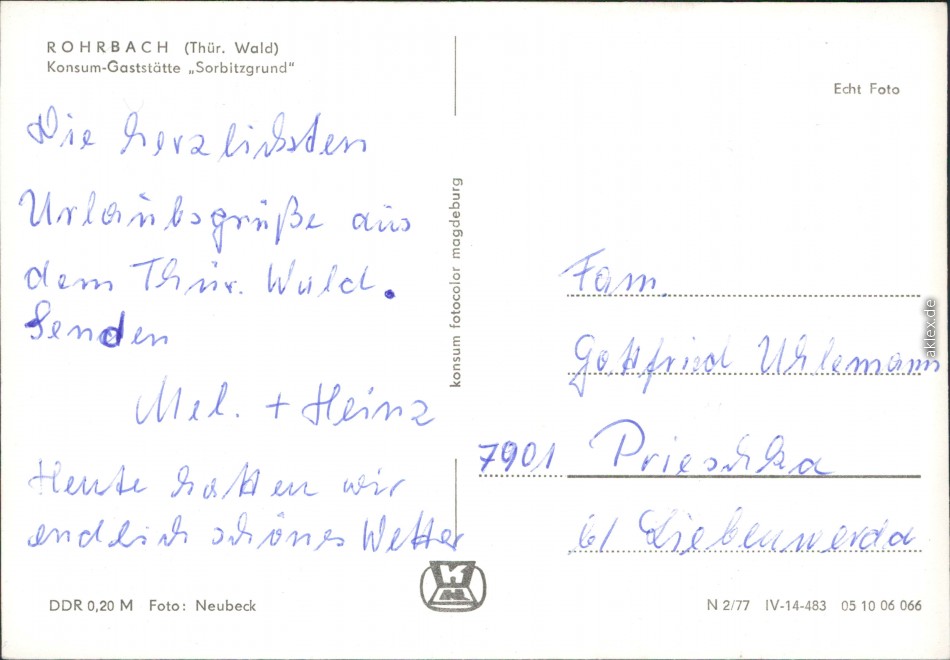 ROHRBACH (Thür. Wald)
Konsum-Gaststätte „Sorbitzgrund"
Die herzlichsten
Urlaubsgrüße aus
dem Thür. Wald.
Senden
Mel. + Heinz
Heute hatten wir
endlich schönes Wetter
DDR 0,20 M Foto: Neubeck
konsum fotocolor magdeburg
K
Echt Foto
Fam.
Gottfried Uhlemann
7901 Prieschka
b/ Liebenwerda
N 2/77 IV-14-483 05 10 06 066
aklex.de